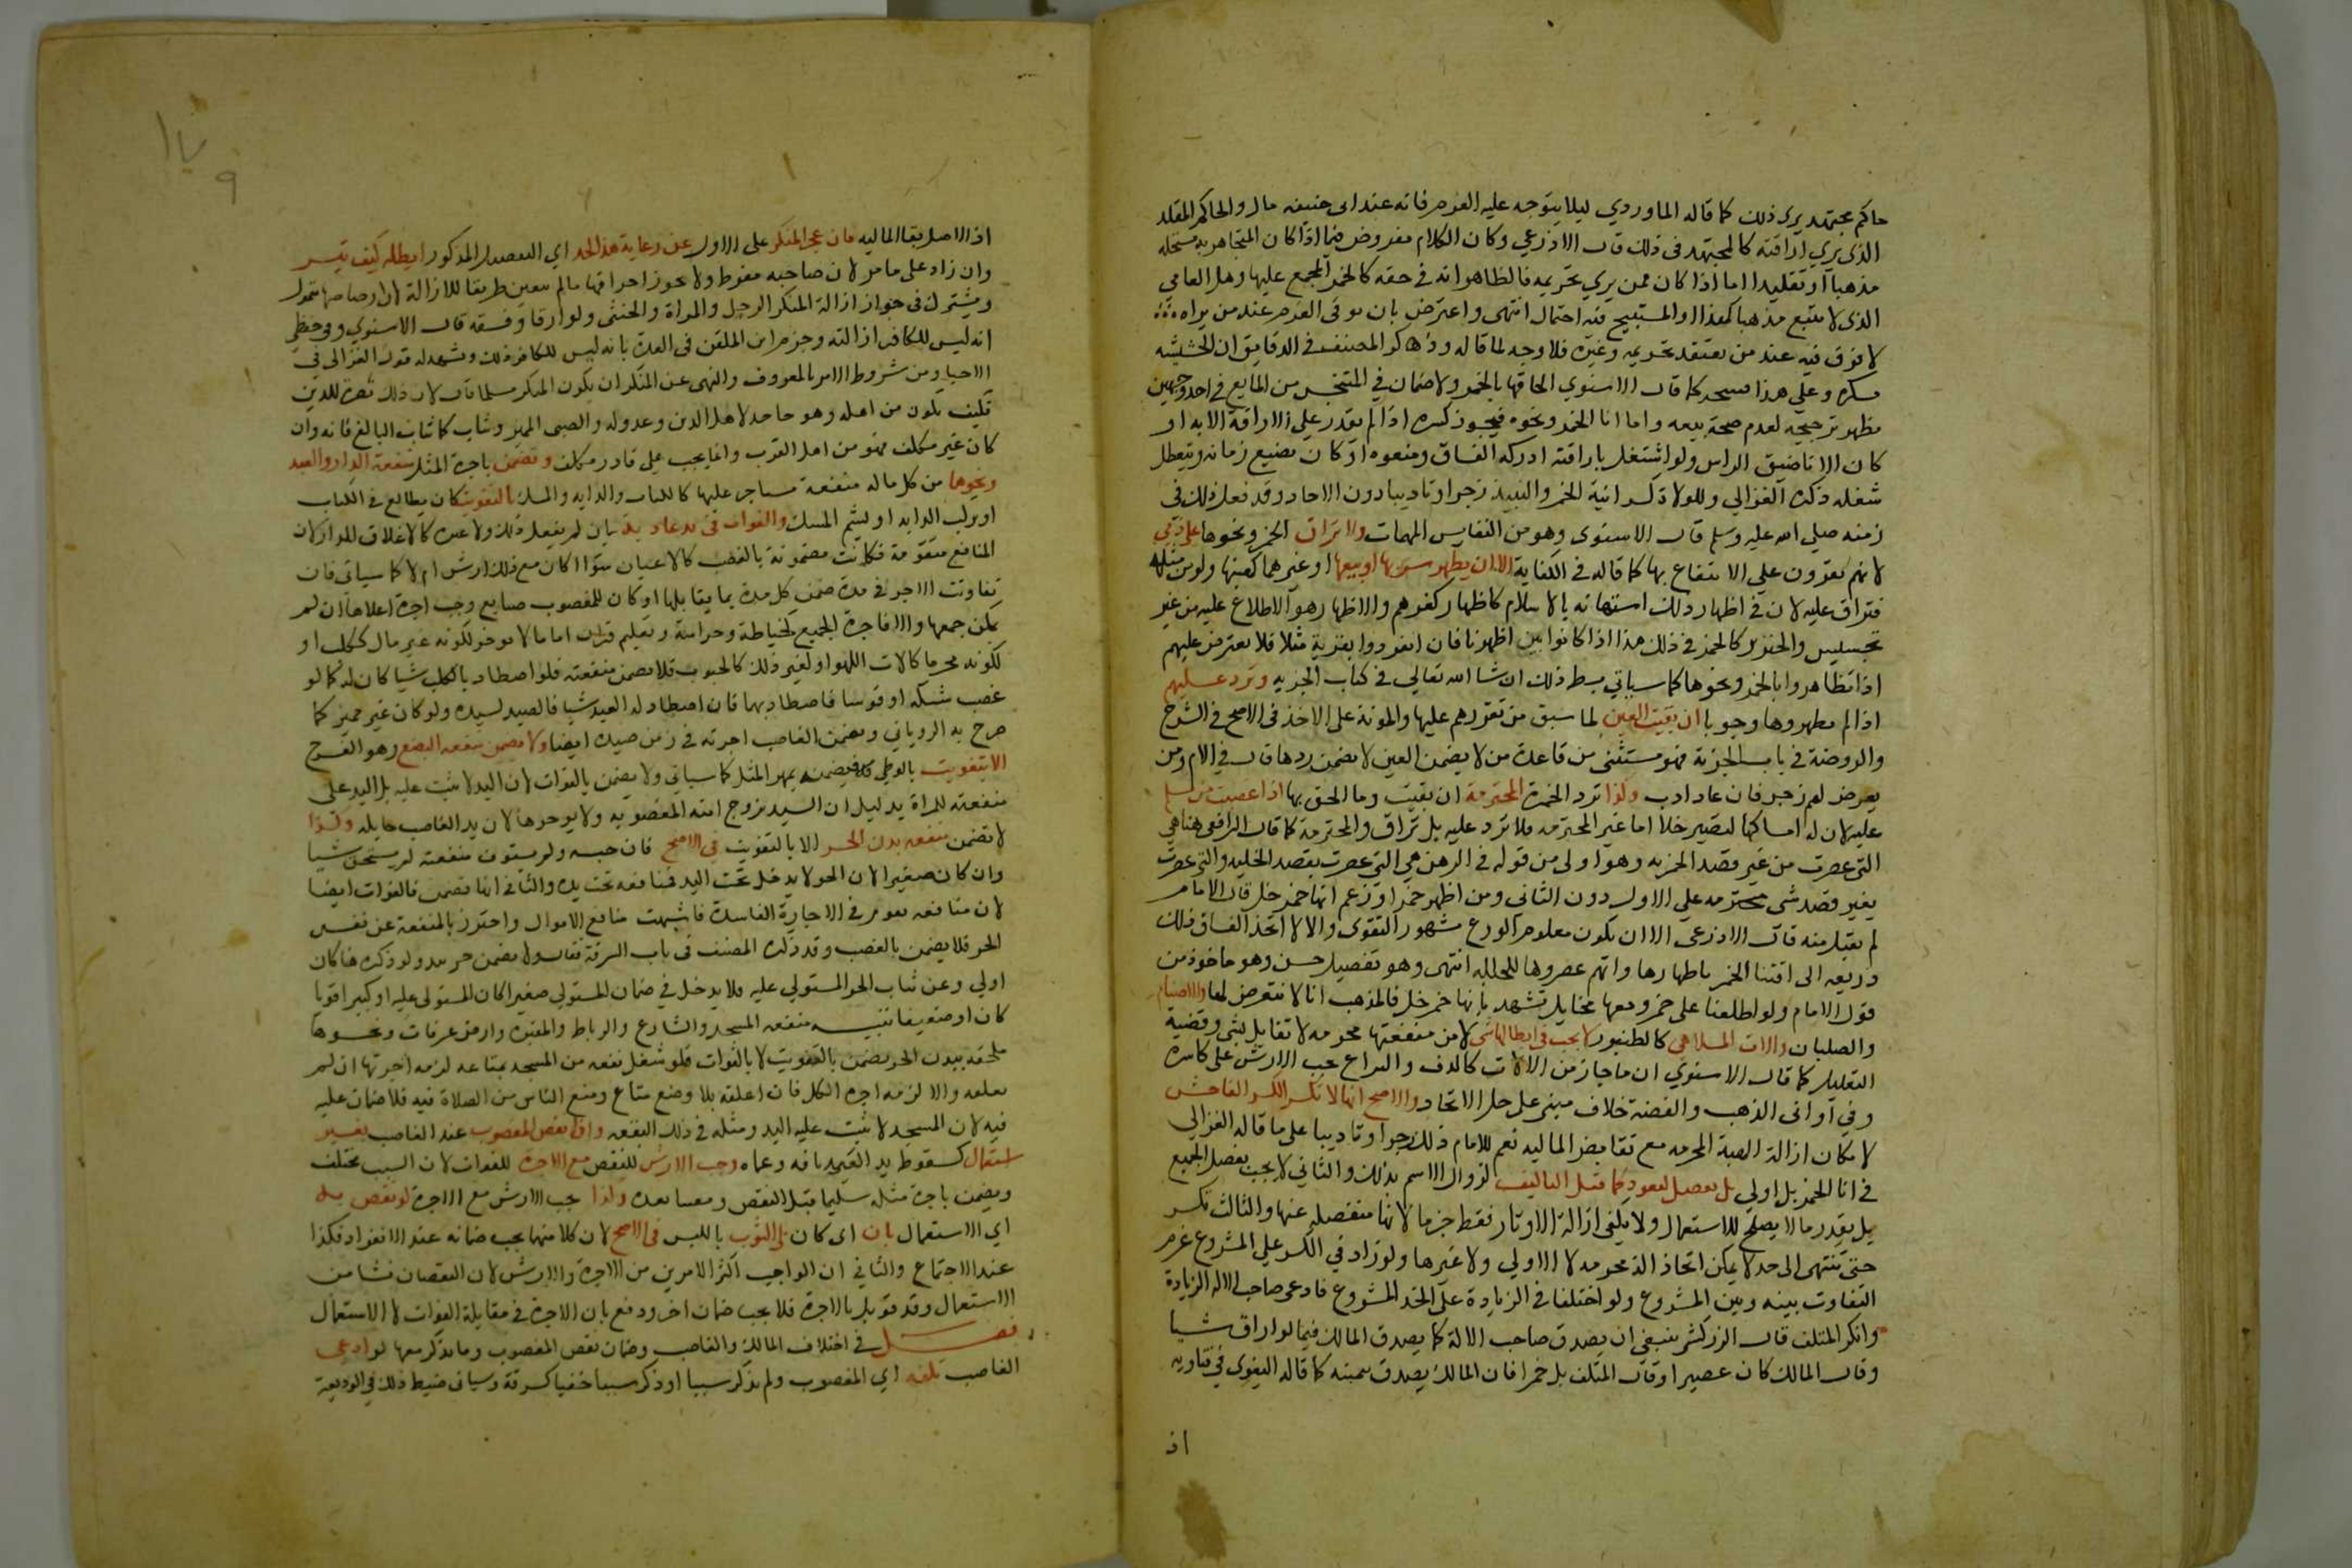 حاكم مجتهد يرى ذلك كما قاله الماوردي ليلا يتوجه عليه الغرم فانه عند ابى حنيفه مال والحاكم المقلد
الذى يري اراقته كالمجتهد فى ذلك قال الاذرعي وكان الكلام مفروض فيما اذا كان المتجاهر به يستحله
مذهبا او تقليدا اما اذا كان ممن يري تحريمه فالظاهر انه في حقه كالخمر المجمع عليها وهل العامي
الذى لا يتبع مذهبا كهذا او المستبيح فيه احتمال انتهى واعترض بان توقى الغرم عند من يراه
لا فرق فيه عند من يعتقد تحريمه وغيره فلا وجه لما قاله وذكر المصنف فى الدقايق ان الحشيشه
مسكره وعلي هذا فيتجه كما قال الاسنوي الحاقها بالخمر ولا ضمان في المتنجس من المايع في احد وجهين
يظهر ترجيحه لعدم صحة بيعه واما انا الخمر ونحوه فيجوز كسره اذا لم يقدر علي الاراقة الا به او
كان الانا ضيق الراس ولو اشتغل باراقته ادركه الفساق ومنعوه او كان يضيع زمانه ويتعطل
شغله ذكره الغزالي وللولاة كسر انية الخمر والنبيذ زجرا وتاديبا دون الاحاد وقد فعل ذلك فى
زمنه صلي الله عليه وسلم قال الاسنوى وهو من النفايس المهمات ولا تراق الخمر ونحوها علي ذمي
لانهم يقرون علي الانتفاع بها كما قاله فى الكفاية الا ان يظهر شربها او بيعها او غيرهما كهبتها ولو من مثله
فتراق عليه لان فى اظهار ذلك استهانه بالاسلام كاظهار كفرهم والاظهار هو الاطلاع عليه من غير
تجسيس والخنزير كالخمر في ذلك هذا اذا كانوا بين اظهرنا فان انفردوا بقرية مثلا فلا نعترض عليهم
اذا تظاهروا بالخمر ونحوها كما سياتي بسط ذلك ان شا الله تعالي فى كتاب الجزيه وترد عليهم
اذا لم يظهروها وجوبا ان بقيت العين لما سبق من تقررهم عليها والمونة على الاخذ فى الاصح فى الشرح
والروضة في باب الجزية فهو مستثنى من قاعدة من لا يضمن العين لا يضمن ردها قال في الام ومن
يعرض لهم زجر فان عاد ادب وكذا ترد الخمرة المحترمة ان بقيت وما الحق بها اذا غصبت من مسلم
عليه لان له امساكها لتصير خلا اما غير المحترمه فلا ترد عليه بل تراق والمحترمة كما قال الرافعي هنا هي
التي عصرت من غير قصد الخمريه وهو اولى من قوله فى الرهن هي التى عصرت بقصد الخليه والتى عصرت
بغير قصد شى محترمه علي الاول دون الثانى ومن اظهر خمرا وزعم انها خمر خل قال الامام
لم يقبل منه قال الاذرعي الا ان يكون معلوم الورع مشهور التقوى والا لاتخذ الفساق ذلك
وريعه الى اقتنا الخمر باظهارها وانهم عصروها للخليه انتهى وهو تفصيل حسن وهو ماخوذ من
قول الامام ولو اطلعنا على خمر ومعها مخايل تشهد بانها خمر خل فالمذهب انا لا نتعرض لها والاصنام
والصلبان والات الملاهي كالطنبور لا يجب فى ابطالها شى لان منفعتها محرمه لا تقابل بشى وقضية
التعليل كما قال الاسنوي ان ما جاز من الالات كالدف واليراع يجب الارش على كاسره
وفي اوانى الذهب والفضة خلاف مبني على حل الاتخاد والاصح انها لا تكسر الكسر الفاحش
لامكان ازالة الهيئة المحرمه مع تقا بعض الماليه نعم للامام ذلك زجرا وتاديبا على ما قاله الغزالي
في انا الخمر بل اولي بل تفصل لتعود كما قبل التاليف لزوال الاسم بذلك والثانى لا يجب تفصيل الجميع
بل بقدر ما لا يصلح للاستعمال ولا يكفي ازالة الاوتار فقط جزما لانها منفصله عنها والثالث تكسر
حتى تنتهى الى حد لا يمكن اتخاذ اله محرمه لا الاولي ولا غيرها ولو زاد في الكسر علي المشروع غرم
التفاوت بينه وبين المشروع ولو اختلفا في الزيادة على الحد المشروع فادعى صاحب الاله الزيادة
وانكر المتلف قال الزركشى ينبغي ان يصدق صاحب الالة كما يصدق المالك فيما لو اراق شيا
وقال المالك كان عصيرا وقال المتلف بل خمرا فان المالك يصدق بيمينه كما قاله البغوى في فتاويه
اذ
٩
اذ الاصل بقا الماليه فان عجز المنكر على الاول عن رعاية هذا الحد اي التفصيل المذكور ابطله كيف تيسر
وان زاد على ما مر لان صاحبه مفرط ولا يجوز احراقها ما لم يتعين طريقا للازالة لان رضاضها متمول
ويشترك فى جواز ازالة المنكر الرجل والمراة والخنثى ولو ارقا وفسقه قال الاسنوي وفى حفظي
انه ليس للكافر ازالته وجزم ابن الملقن فى العمدة بانه ليس للكافر ذلك ويشهد له قول الغزالى فى
الاحيا ومن شروط الامر بالمعروف والنهى عن المنكر ان يكون المنكر مسلما قال لان ذلك نصرة للدين
فكيف يكون من اهله وهو جاحد لاهل الدين وعدو له والصبى المميز ويثاب كما يثاب البالغ فانه وان
كان غير مكلف فهو من اهل القرب وانما يجب علي قادر مكلف وتضمن باجرة المثل منفعة الدار والعبد
ونحوها من كل ما له منفعة يستاجر عليها كالكتاب والدابه والمسك بالتفويت كان يطالع فى الكتاب
او يركب الدابه او يشم المسك والفوات فى يد عاديه بان لم يفعل ذلك ولا غيره كالاغلاق للدار لان
المنافع متقومة فكانت مضمونة بالغصب كالاعيان سوا اكان مع ذلك ارش ام لا كما سياتى فان
تفاوتت الاجرة فى مدة ضمن كل مدة بما يقابلها او كان للمغصوب صنايع وجب اجرة اعلاها ان لم
يمكن جمعها والا فاجرة الجميع كخياطة وحراسة وتعليم قران اما ما لا يوجر لكونه غير مال ككلب او
لكونه محرما كالات اللهو او لغير ذلك كالحبوب فلا يضمن منفعته فلو اصطاد بالكلب شيا كان له كما لو
غصب شبكه او قوسا فاصطاد بهما فان اصطاد له العبد شيا فالصيد لسيده ولو كان غير مميز كما
صرح به الروياني ويضمن الغاصب اجرته في زمن صيده ايضا ولا يضمن منفعه البضع وهو الفرج
الا بتفويت بالوطي فيضمنه بمهر المثل كما سياتي ولا يضمن بالفوات لان اليد لا تثبت عليه بل اليد على
منفعته للمراة بدليل ان السيد يزوج امته المغصوبه ولا يوجرها لان يد الغاصب حايله وكذا
لا تضمن منفعه بدن الحر الا بالتفويت فى الاصح فان حبسه ولم يستوف منفعته لم يستحق شيا
وان كان صغيرا لان الحر لا يدخل تحت اليد فمنافعه تحت يده والثانى انها تضمن بالفوات ايضا
لان منافعه تقوم فى الاجارة الفاسدة فاشبهت منافع الاموال واحترز بالمنفعة عن نفس
الحر فلا يضمن بالغصب وقد ذكره المصنف فى باب السرقة فقال ولا يضمن حر بيد ولو ذكره هنا كان
اولي وعن ثياب الحر المستولي عليه فلا يدخل في ضمان المستولي صغيرا كان المستولى عليه او كبيرا قويا
كان او ضعيفا تنبيه منفعه المسجد والشارع والرباط والمقبره وارض عرفات ونحوها
ملحقه ببدن الحر تضمن بالتفويت لا بالفوات فلو شغل بقعه من المسجد بمتاعه لزمه اجرتها ان لم
يغلقه والا لزمه اجرة الكل فان اغلقه بلا وضع متاع ومنع الناس من الصلاة فيه فلا ضمان عليه
فيه لان المسجد لا تثبت عليه اليد ومثله فى ذلك البقعه واذا نقص المغصوب عند الغاصب بغير
استعمال كسقوط يد العبد بافه وعماه وجب الارش للنقص مع الاجرة للفوات لان السبب مختلف
ويضمن باجرة مثله سليما قبل النقص ومعيبا بعده وكذا يجب الارش مع الاجرة لو نقص به
اي الاستعمال بان اى كان بلى الثوب باللبس فى الاصح لان كلا منهما يجب ضمانه عند الانفراد فكذا
عند الاجتماع والثانى ان الواجب اكثر الامرين من الاجرة والارش لان النقصان نشا من
الاستعمال وقد قوبل بالاجرة فلا يجب ضمان اخر ودفع بان الاجرة فى مقابلة الفوات لا الاستعمال
فصل في اختلاف المالك والغاصب وضمان نقص المغصوب وما يذكر معها لو ادعى
الغاصب تلفه اي المغصوب ولم يذكر سببا او ذكر سببا خفيا كسرقة وسياتى ضبط ذلك في الوديعة